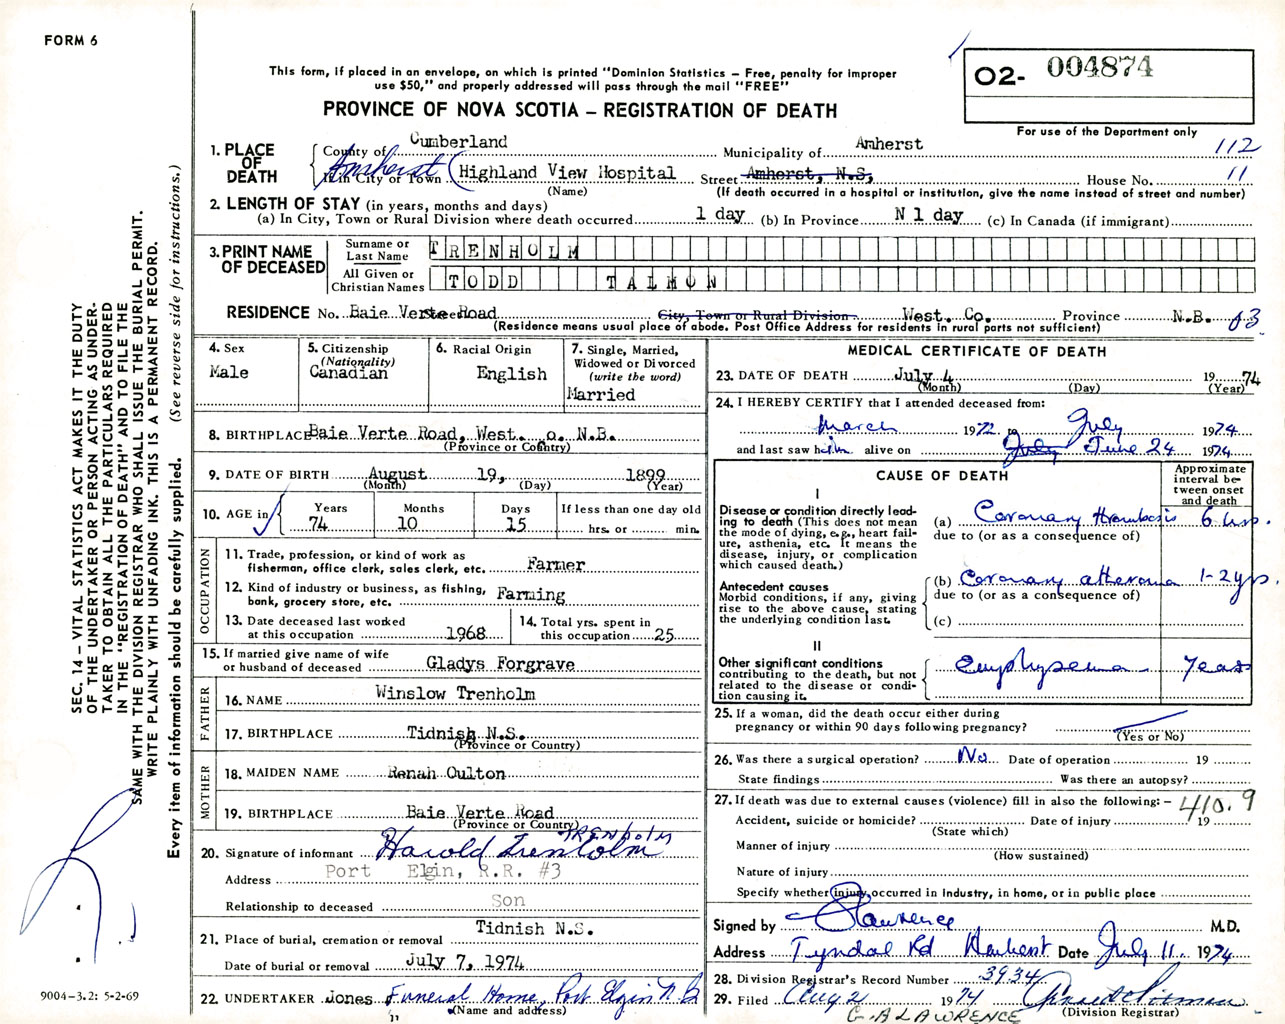 FORM 6
This form, if placed in an envelope, on which is printed "Dominion Statistics – Free, penalty for improper
use $50," and properly addressed will pass through the mail "FREE"
PROVINCE OF NOVA SCOTIA – REGISTRATION OF DEATH
02- 004874
For use of the Department only
1. PLACE OF DEATH
County of Cumberland Municipality of Amherst 112
If in City or Town Amherst (Highland View Hospital Street Amherst, N.S. House No. 11
(Name) (If death occurred in a hospital or institution, give the name instead of street and number)
2. LENGTH OF STAY (in years, months and days)
(a) In City, Town or Rural Division where death occurred 1 day (b) In Province N 1 day (c) In Canada (if immigrant)
3. PRINT NAME OF DECEASED
Surname or Last Name TRENHOLM
All Given or Christian Names TODD TALMON
RESIDENCE No. Baie Verte Road City, Town or Rural Division West. Co. Province N.B. 03
(Residence means usual place of abode. Post Office Address for residents in rural parts not sufficient)
4. Sex
Male
5. Citizenship
(Nationality)
Canadian
6. Racial Origin
English
7. Single, Married,
Widowed or Divorced
(write the word)
Married
8. BIRTHPLACE Baie Verte Road, West. o. N.B.
(Province or Country)
9. DATE OF BIRTH August 19, 1899
(Month) (Day) (Year)
10. AGE in
Years 74
Months 10
Days 15
If less than one day old
hrs. or min.
OCCUPATION
11. Trade, profession, or kind of work as
fisherman, office clerk, sales clerk, etc. Farmer
12. Kind of industry or business, as fishing,
bank, grocery store, etc. Farming
13. Date deceased last worked
at this occupation 1968
14. Total yrs. spent in
this occupation 25
15. If married give name of wife
or husband of deceased Gladys Forgrave
FATHER
16. NAME Winslow Trenholm
17. BIRTHPLACE Tidnish N.S.
(Province or Country)
MOTHER
18. MAIDEN NAME Renah Oulton
19. BIRTHPLACE Baie Verte Road
(Province or Country)
TRENHOLM
20. Signature of informant Harold Trenholm
Address Port Elgin, R.R. #3
Relationship to deceased Son
21. Place of burial, cremation or removal Tidnish N.S.
Date of burial or removal July 7, 1974
22. UNDERTAKER Jones Funeral Home, Port Elgin N B
(Name and address)
MEDICAL CERTIFICATE OF DEATH
23. DATE OF DEATH July 4 19 74
(Month) (Day) (Year)
24. I HEREBY CERTIFY that I attended deceased from:
March 1972 to July 1974
and last saw him alive on July June 24 1974
CAUSE OF DEATH
Approximate
interval be-
tween onset
and death
I
Disease or condition directly lead-
ing to death (This does not mean
the mode of dying, e.g., heart fail-
ure, asthenia, etc. It means the
disease, injury, or complication
which caused death.)
(a) Coronary thrombosis 6 hrs.
due to (or as a consequence of)
Antecedent causes
Morbid conditions, if any, giving
rise to the above cause, stating
the underlying condition last.
(b) Coronary atheroma 1-2 yrs.
due to (or as a consequence of)
(c)
II
Other significant conditions
contributing to the death, but not
related to the disease or condi-
tion causing it.
Emphysema Years
25. If a woman, did the death occur either during
pregnancy or within 90 days following pregnancy?
(Yes or No)
26. Was there a surgical operation? No Date of operation 19
State findings Was there an autopsy?
27. If death was due to external causes (violence) fill in also the following: – 410.9
Accident, suicide or homicide? Date of injury 19
(State which)
Manner of injury
(How sustained)
Nature of injury
Specify whether injury occurred in industry, in home, or in public place
Signed by Lawrence M.D.
Address Tyndal Rd Amherst Date July 11. 1974
28. Division Registrar's Record Number 3934
29. Filed Aug 2 1974
G.A LAWRENCE (Division Registrar)
SEC. 14 – VITAL STATISTICS ACT MAKES IT THE DUTY
OF THE UNDERTAKER OR PERSON ACTING AS UNDER-
TAKER TO OBTAIN ALL THE PARTICULARS REQUIRED
IN THE "REGISTRATION OF DEATH" AND TO FILE THE
SAME WITH THE DIVISION REGISTRAR WHO SHALL ISSUE THE BURIAL PERMIT.
WRITE PLAINLY WITH UNFADING INK. THIS IS A PERMANENT RECORD.
Every item of information should be carefully supplied. (See reverse side for instructions.)
9004-3.2: 5-2-69